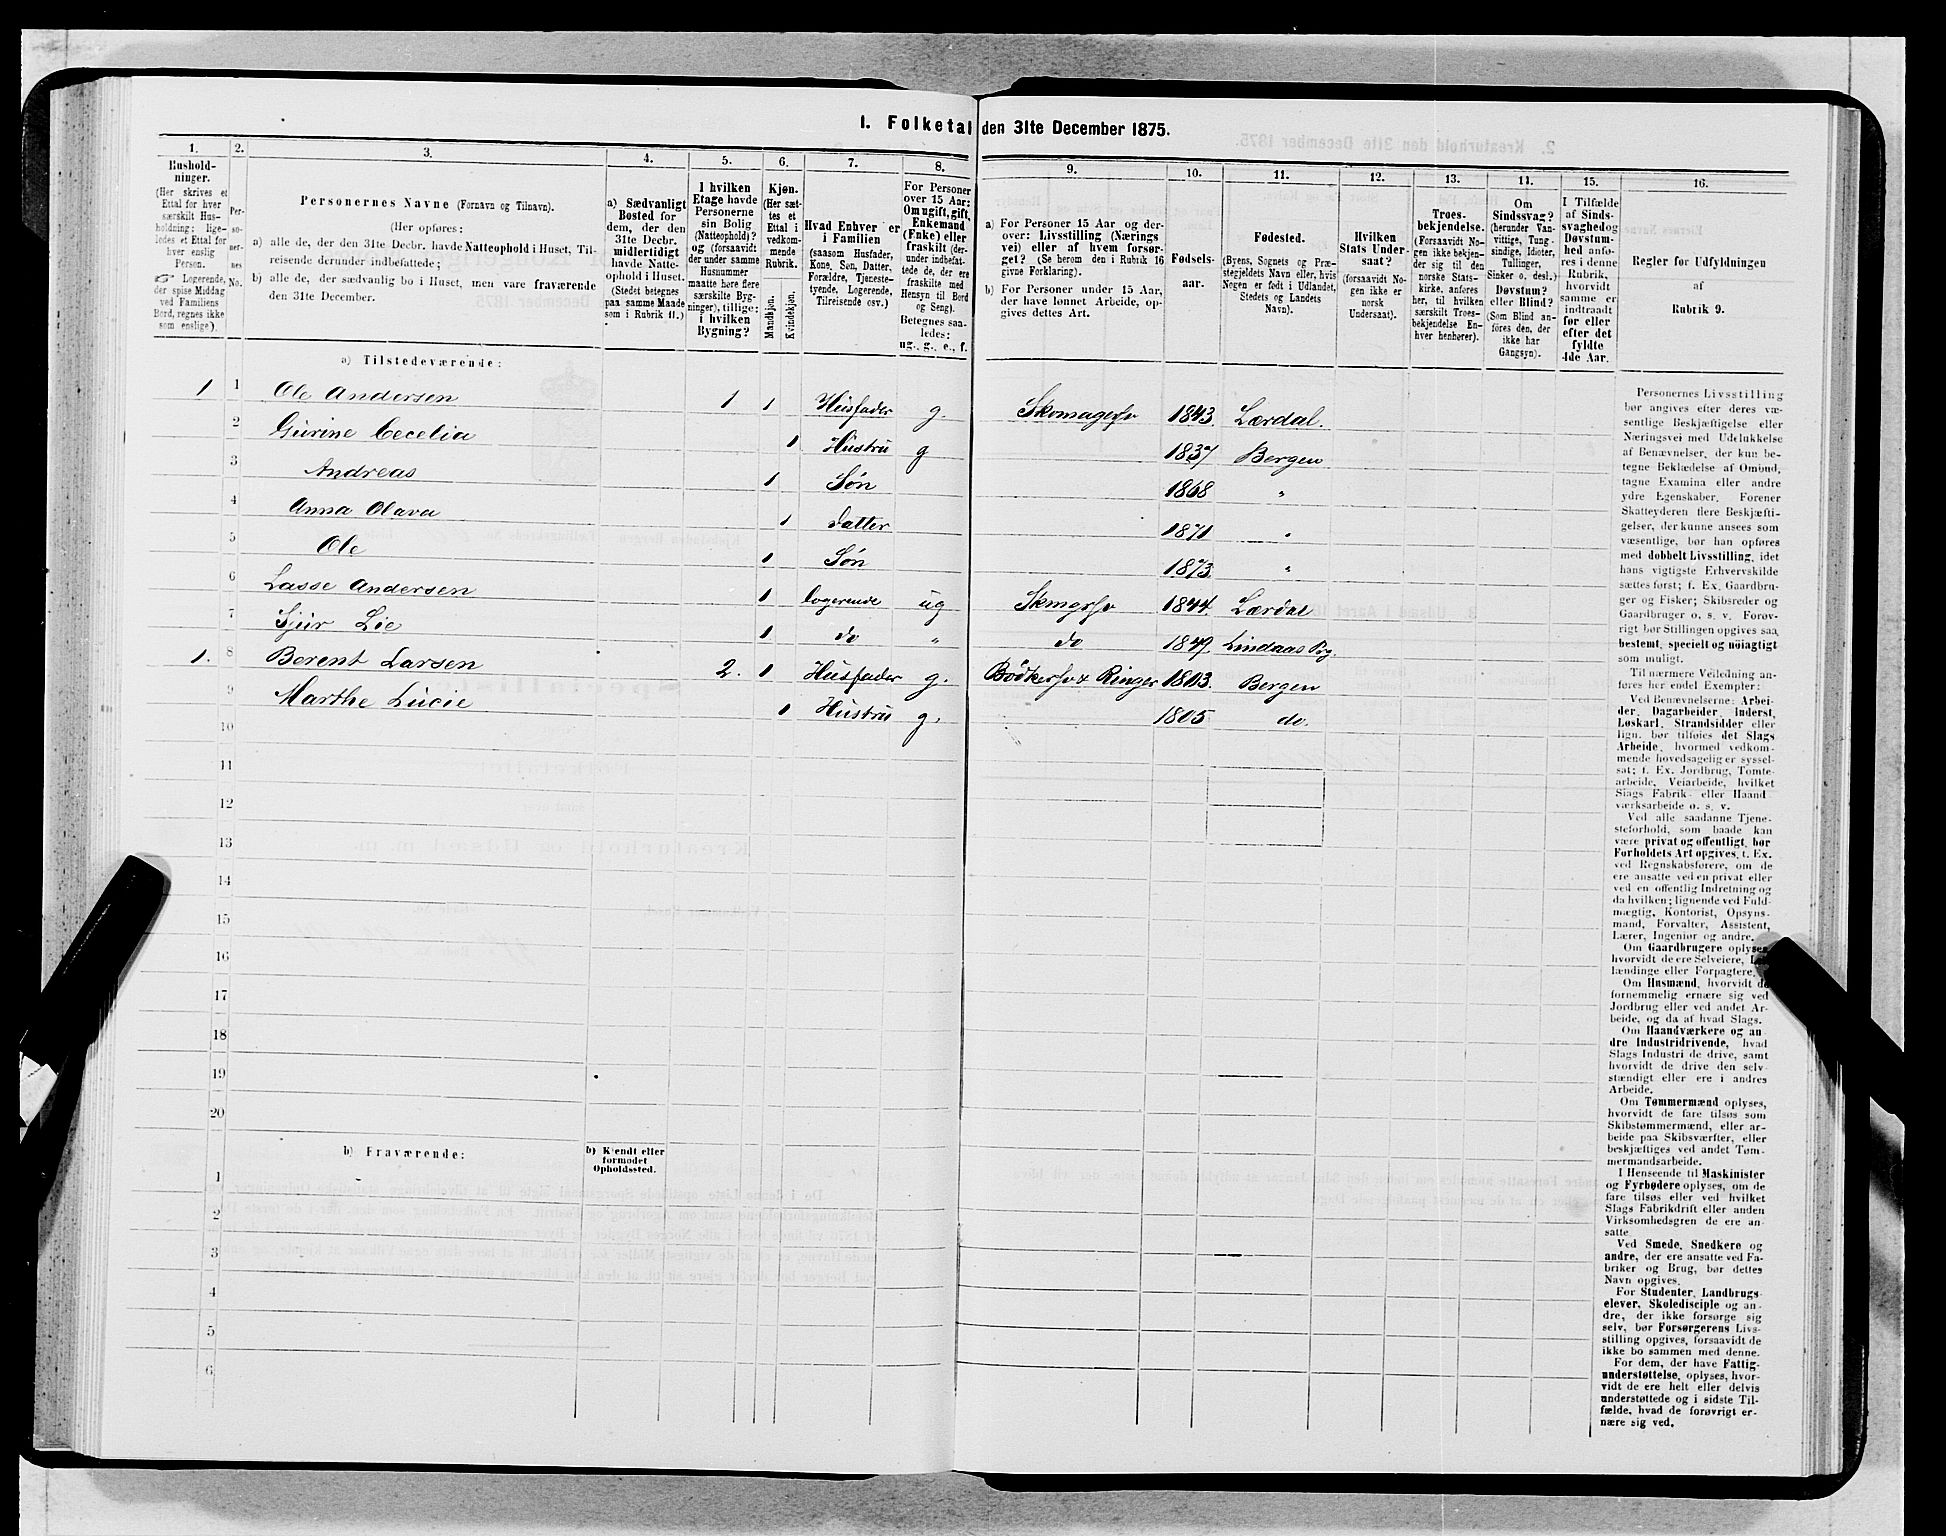 1. Folketal den 31te December 1875.
1. 2. 3. 4. 5. 6. 7. 8. 9. 10. 11. 12. 13. 14. 15. 16.
Hushold-
ninger.
(Her skrives et
Ettal for hver
særskilt Hus-
holdning; lige-
ledes et Ettal for
hver enslig
Person.
Logerende,
der spise Middag
ved Familiens
Bord, regnes ikke
som enslige).
Per-
so-
ner-
nes
No.
Personernes Navne (Fornavn og Tilnavn).
(Her opføres:
a) alle de, der den 31te Decbr. havde Natteophold i Huset, Til-
reisende derunder indbefattede;
b) alle de, der sædvanlig bo i Huset, men vare fraværende
den 31te December.
a) Sædvanligt
Bosted for
dem, der den
31te Decbr.
midlertidigt
havde Natte-
ophold i Huset.
(Stedet betegnes
paa samme Maade
som i Rubrik 11.)
I hvilken
Etage havde
Personerne
sin Bolig
(Natteophold)?
og (forsaavidt
der under samme
Husnummer
maatte høre flere
særskilte Byg-
ninger), tillige:
i hvilken
Bygning?
Kjøn.
(Her sæt-
tes et
Ettal i
vedkom-
mende
Rubrik.
Mandkjøn.
Kvindekjøn.
Hvad Enhver er
i Familien
(saasom Husfader,
Kone, Søn, Datter,
Forældre, Tjeneste-
tyende, Logerende,
Tilreisende osv.)
For Personer
over 15 Aar:
Om ugift, gift,
Enkemand
(Enke) eller
fraskilt (der-
under indbefat-
tede de, der ere
fraskilte med
Hensyn til Bord
og Seng).
Betegnes saa-
ledes:
ug., g., e., f.
a) For Personer 15 Aar og der-
over: Livsstilling (Nærings
vei) eller af hvem forsør-
get? (Se herom den i Rubrik 16
givne Forklaring).
b) For Personer under 15 Aar,
der have lønnet Arbeide, op-
gives dettes Art.
Fødsels-
aar.
Fødested.
(Byens, Sognets og Præ-
stegjeldets Navn eller, hvis
Nogen er født i Udlandet,
Stedets og Landets
Navn).
Hvilken
Stats Under-
saat?
(forsaavidt No-
gen ikke er
norsk
Undersaat).
Troes-
bekjendelse.
(Forsaavidt No-
gen ikke bekjen-
der sig til den
norske Stats-
kirke, anføres
her, til hvilken
særskilt Troes-
bekjendelse En-
hver henhører).
Om
Sindssvag?
(herunder Van-
vittige, Tung-
sindige, Idioter,
Tullinger,
Sinker o. desl.)
Døvstum?
eller Blind?
(Som Blind an-
føres den, der
ikke har
Gangsyn).
I Tilfælde
af Sinds-
svaghed og
Døvstum-
hed anfø-
res i denne
Rubrik,
hvorvidt
samme er
indtraadt
før eller
efter det
fyldte
4de Aar.
Regler for Udfyldningen
af
Rubrik 9.
a) Tilstedeværende:
1 1 Ole Andersen 1 1 Husfader g. Skomagersv 1843. Lærdal.
2 Gurine Cecelia 1 Hustru g 1837 Bergen
3 Andreas 1 Søn 1868 "
4 Anna Olava 1 datter 1871 "
5 Ole 1 Søn 1873. "
6 Lasse Andersen 1 logerende ug Skmgrsv 1844. Lærdal
7 Sjur Lie 1 do " do 1849. Lindaas Pg.
1. 8 Berent Larsen 2. 1 Husfader g. Bødkersv & Ringer 1803. Bergen
9 Marthe Lucie 1 Hustru g. 1805 do.
10
11
12
13
14
15
16
17
18
19
20
b) Fraværende:
b) Kjendt eller
formodet
Opholdssted.
1
2
3
4
5
6
Personernes Livsstilling
bør angives efter deres væ-
sentlige Beskjæftigelse eller
Næringsvei med Udelukkelse
af Benævnelser, der kun be-
tegne Beklædelse af Ombud,
tagne Examina eller andre
ydre Egenskaber. Forener
Skatteyderen flere Beskjæfti-
gelser, der kunne ansees som
væsentlige, bør han opføres
med dobbelt Livsstilling, idet
hans vigtigste Erhvervskilde
sættes først; f. Ex. Gaardbru-
ger og Fisker; Skibsreder og
Gaardbruger o. s. v. Forøv-
rigt bør Stillingen opgives saa
bestemt, specielt og nøiagtigt
som muligt.
Til nærmere Veiledning an-
føres her endel Exempler:
Ved Benævnelserne: Arbei-
der, Dagarbeider, Inderst,
Løskarl, Strandsidder eller
lign. bør tilføies det Slags
Arbeide, hvormed vedkom-
mende hovedsagelig er syssel-
sat; f. Ex. Jordbrug, Tomte-
arbeide, Veiarbeide, hvilket
Slags Fabrik- eller Haand
værksarbeide o. s. v.
Ved alle saadanne Tjene-
steforhold, som baade kan
være privat og offentligt, bør
Forholdets Art opgives, f. Ex.
ved Regnskabsførere, om de
ere ansatte ved en privat eller
ved en offentlig Indretning og
da hvilken; lignende ved Fuld-
mægtig, Kontorist, Opsyns-
mand, Forvalter, Assistent,
Lærer, Ingeniør og andre.
Om Gaardbrugere oplyses,
hvorvidt de ere Selveiere,
lændinge eller Forpagtere.
Om Husmænd, hvorvidt de
fornemmelig ernære sig ved
Jordbrug eller ved andet Ar-
beide, og da af hvad Slags.
Om Haandværkere og an
dre Industridrivende, hvad
Slags Industri de drive, samt
hvorvidt de drive den selv-
stændigt eller ere i andres
Arbeide.
Om Tømmermænd oplyses,
hvorvidt de fare tilsøs som
Skibstømmermænd, eller ar-
beide paa Skibsværfter, eller
beskjæftiges ved andet Tøm-
mermandsarbeide.
I Henseende til Maskinister
og Fyrbødere oplyses, om de
fare tilsøs eller ved hvilket
Slags Fabrikdrift eller anden
Virksomhedsgren de ere an-
satte.
Ved Smede, Snedkere og
andre, der ere ansatte ved Fa-
briker og Brug, bør dettes
Navn opgives.
For Studenter, Landbrugs-
elever, Skoledisciple og an-
dre, der ikke forsørge sig
selv, bør Forsørgerens Livs-
stilling opgives, forsaavidt de
ikke bo sammen med denne.
For dem, der have Fattig-
understøttelse, oplyses, hvor-
vidt de ere helt eller delvis
understøttede og i sidste Til-
fælde, hvad de forøvrigt er-
nære sig ved.